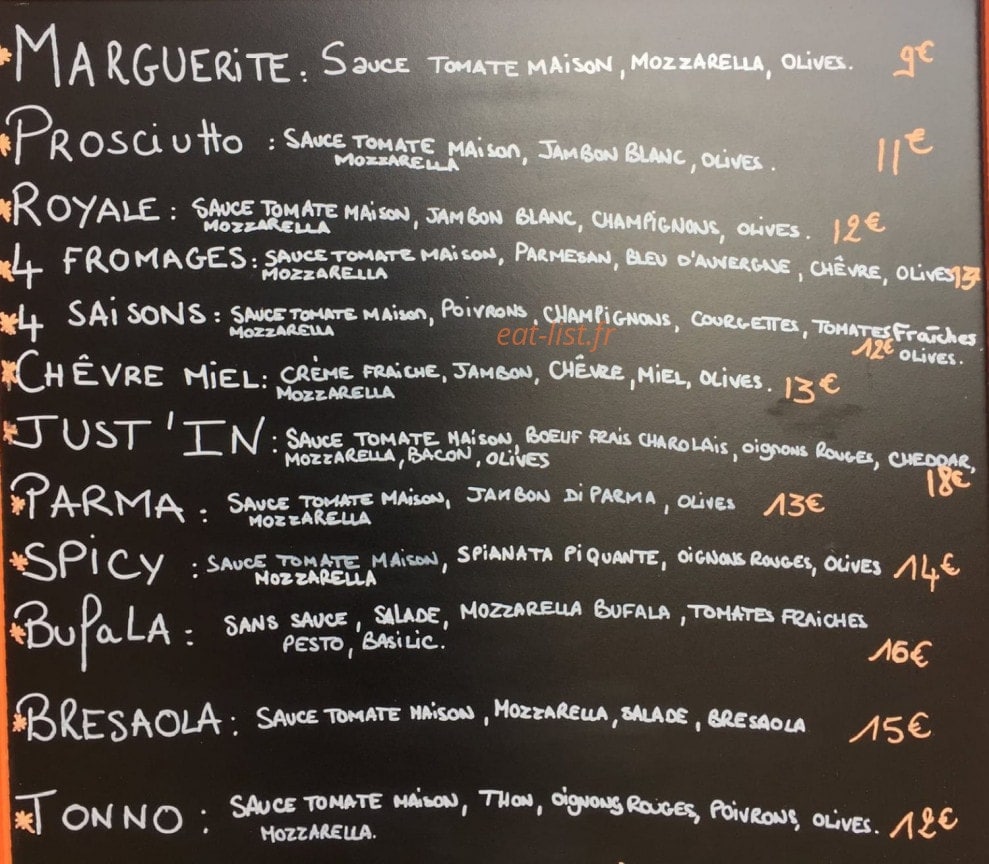 *MARGUERITE : SAUCE TOMATE MAISON, MOZZARELLA, OLIVES. 9€
*PROSCIUTTO : SAUCE TOMATE MAISON, JAMBON BLANC, OLIVES. 11€
MOZZARELLA
*ROYALE : SAUCE TOMATE MAISON, JAMBON BLANC, CHAMPIGNONS, OLIVES. 12€
MOZZARELLA
*4 FROMAGES : SAUCE TOMATE MAISON, PARMESAN, BLEU D'AUVERGNE, CHÊVRE, OLIVES 13
MOZZARELLA
*4 SAISONS : SAUCE TOMATE MAISON, POIVRONS, CHAMPIGNONS, COURGETTES, TOMATES FRAÎCHES
MOZZARELLA 12€ OLIVES.
eat-list.fr
*CHÊVRE MIEL : CRÈME FRAICHE, JAMBON, CHÊVRE, MIEL, OLIVES. 13€
MOZZARELLA
*JUST'IN : SAUCE TOMATE MAISON, BOEUF FRAIS CHAROLAIS, OIGNONS ROUGES, CHEDDAR,
MOZZARELLA, BACON, OLIVES 18€
*PARMA : SAUCE TOMATE MAISON, JAMBON DI PARMA, OLIVES 13€
MOZZARELLA
*SPICY : SAUCE TOMATE MAISON, SPIANATA PIQUANTE, OIGNONS ROUGES, OLIVES 14€
MOZZARELLA
*BUFALA : SANS SAUCE, SALADE, MOZZARELLA BUFALA, TOMATES FRAICHES
PESTO, BASILIC. 16€
*BRESAOLA : SAUCE TOMATE MAISON, MOZZARELLA, SALADE, BRESAOLA 15€
*TONNO : SAUCE TOMATE MAISON, THON, OIGNONS ROUGES, POIVRONS, OLIVES. 12€
MOZZARELLA.